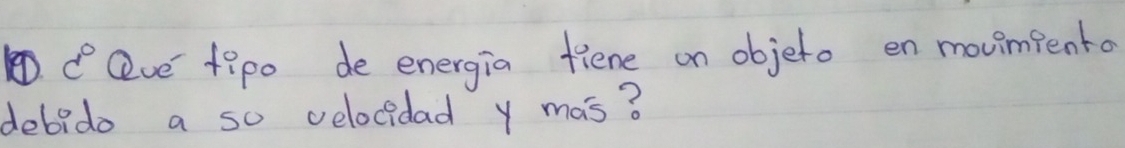 1) ¿Qué tipo de energía tiene un objeto en movimiento
debido a su velocidad y más?